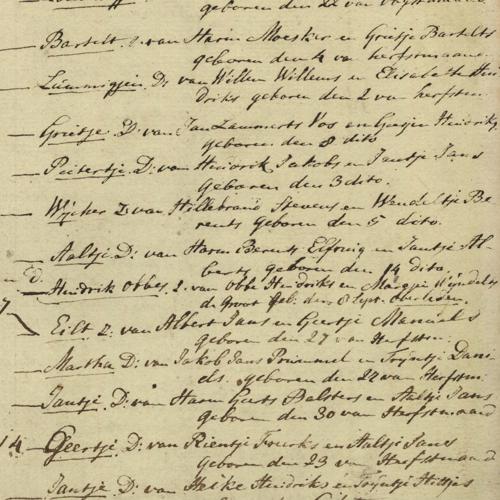 geboren den 22 van
Bartelt Z. van Harm Moesker en Grietje Bartelts
geboren den 4 van herfstmaand
Lammigjen D: van Willem Willems en Elisabeth Hen
driks geboren den 2 van herfstm
Grietje D: van Jan Lammerts Vos en Hendriks
geboren den 8 dito
Pietertje D: van Hindrik Jakobs en Jantje Jans
geboren den 3 dito.
Wijcher Z van Hillebrand Stevens en Wendeltje Be
rents geboren den 5 dito.
Aaltje D: van Harm Berents en Jantje Al
berts geboren den 14 dito
Ed. Hindrik Obbes Z. van Obbe Hindriks en Margje Wijndelts
de Groot geb: den 8 Sept. overleden.
7
Eilt Z. van Albert Jans en Geertje Manuels
geboren den 27 van Herfstm:
Martha D: van Jakob Jans en Trijntje Dani
els. geboren den 22 van Herfstm:
Jantje D: van Harm Geerts Balsters en Aaltje Jans
geboren den 30 van Herfstmaand
14 Geertje D: van Rientje Fourks en Aaltje Jans
geboren den 23 van Herfstmaand
Jantje D: van Heike Hindriks en Trijntje